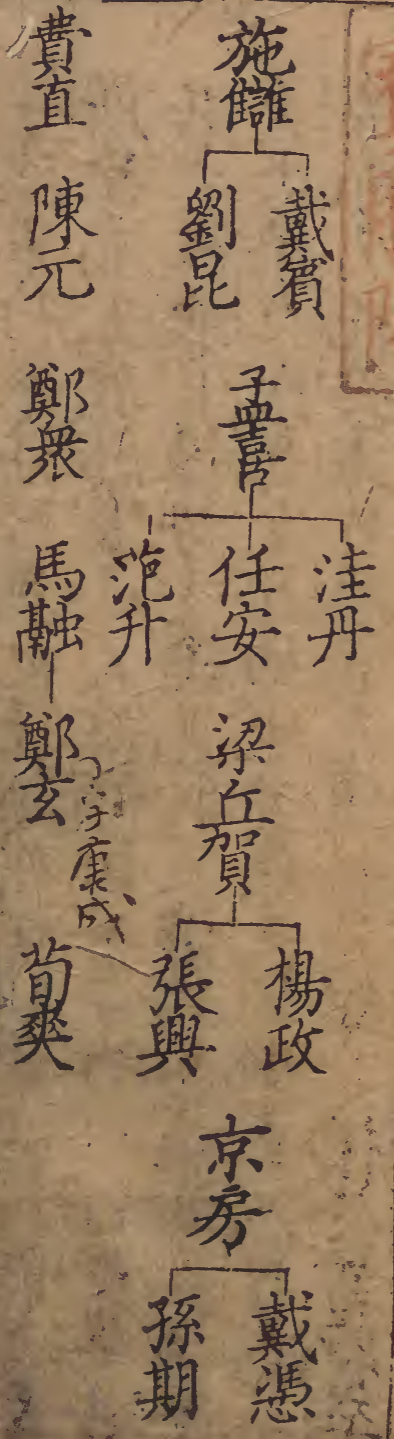 施讎
戴賓
劉昆
孟喜
洼丹
任安
范升
梁丘賀
楊政
張興
京房
戴憑
孫期
費直
陳元
鄭衆
馬融
鄭玄
字康成
荀爽